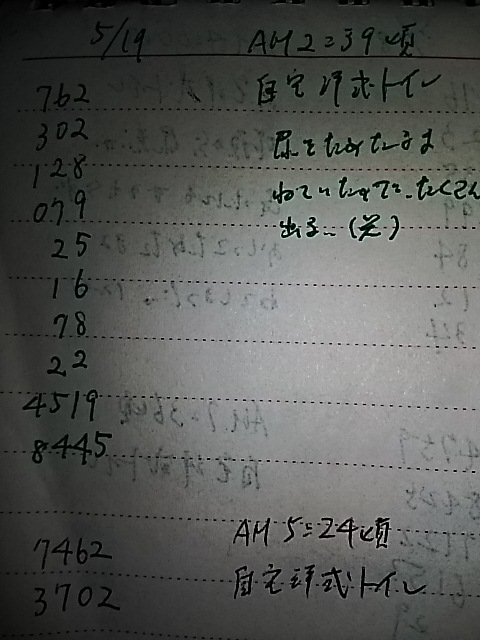 5/19 AM2=39頃
762 自宅洋式トイレ
302 尿をためたまま
128 ねていたので、たくさん
079 出る…(笑)
25
16
78
22
4519
8445
7462 AM5=24頃
3702 自宅洋式トイレ